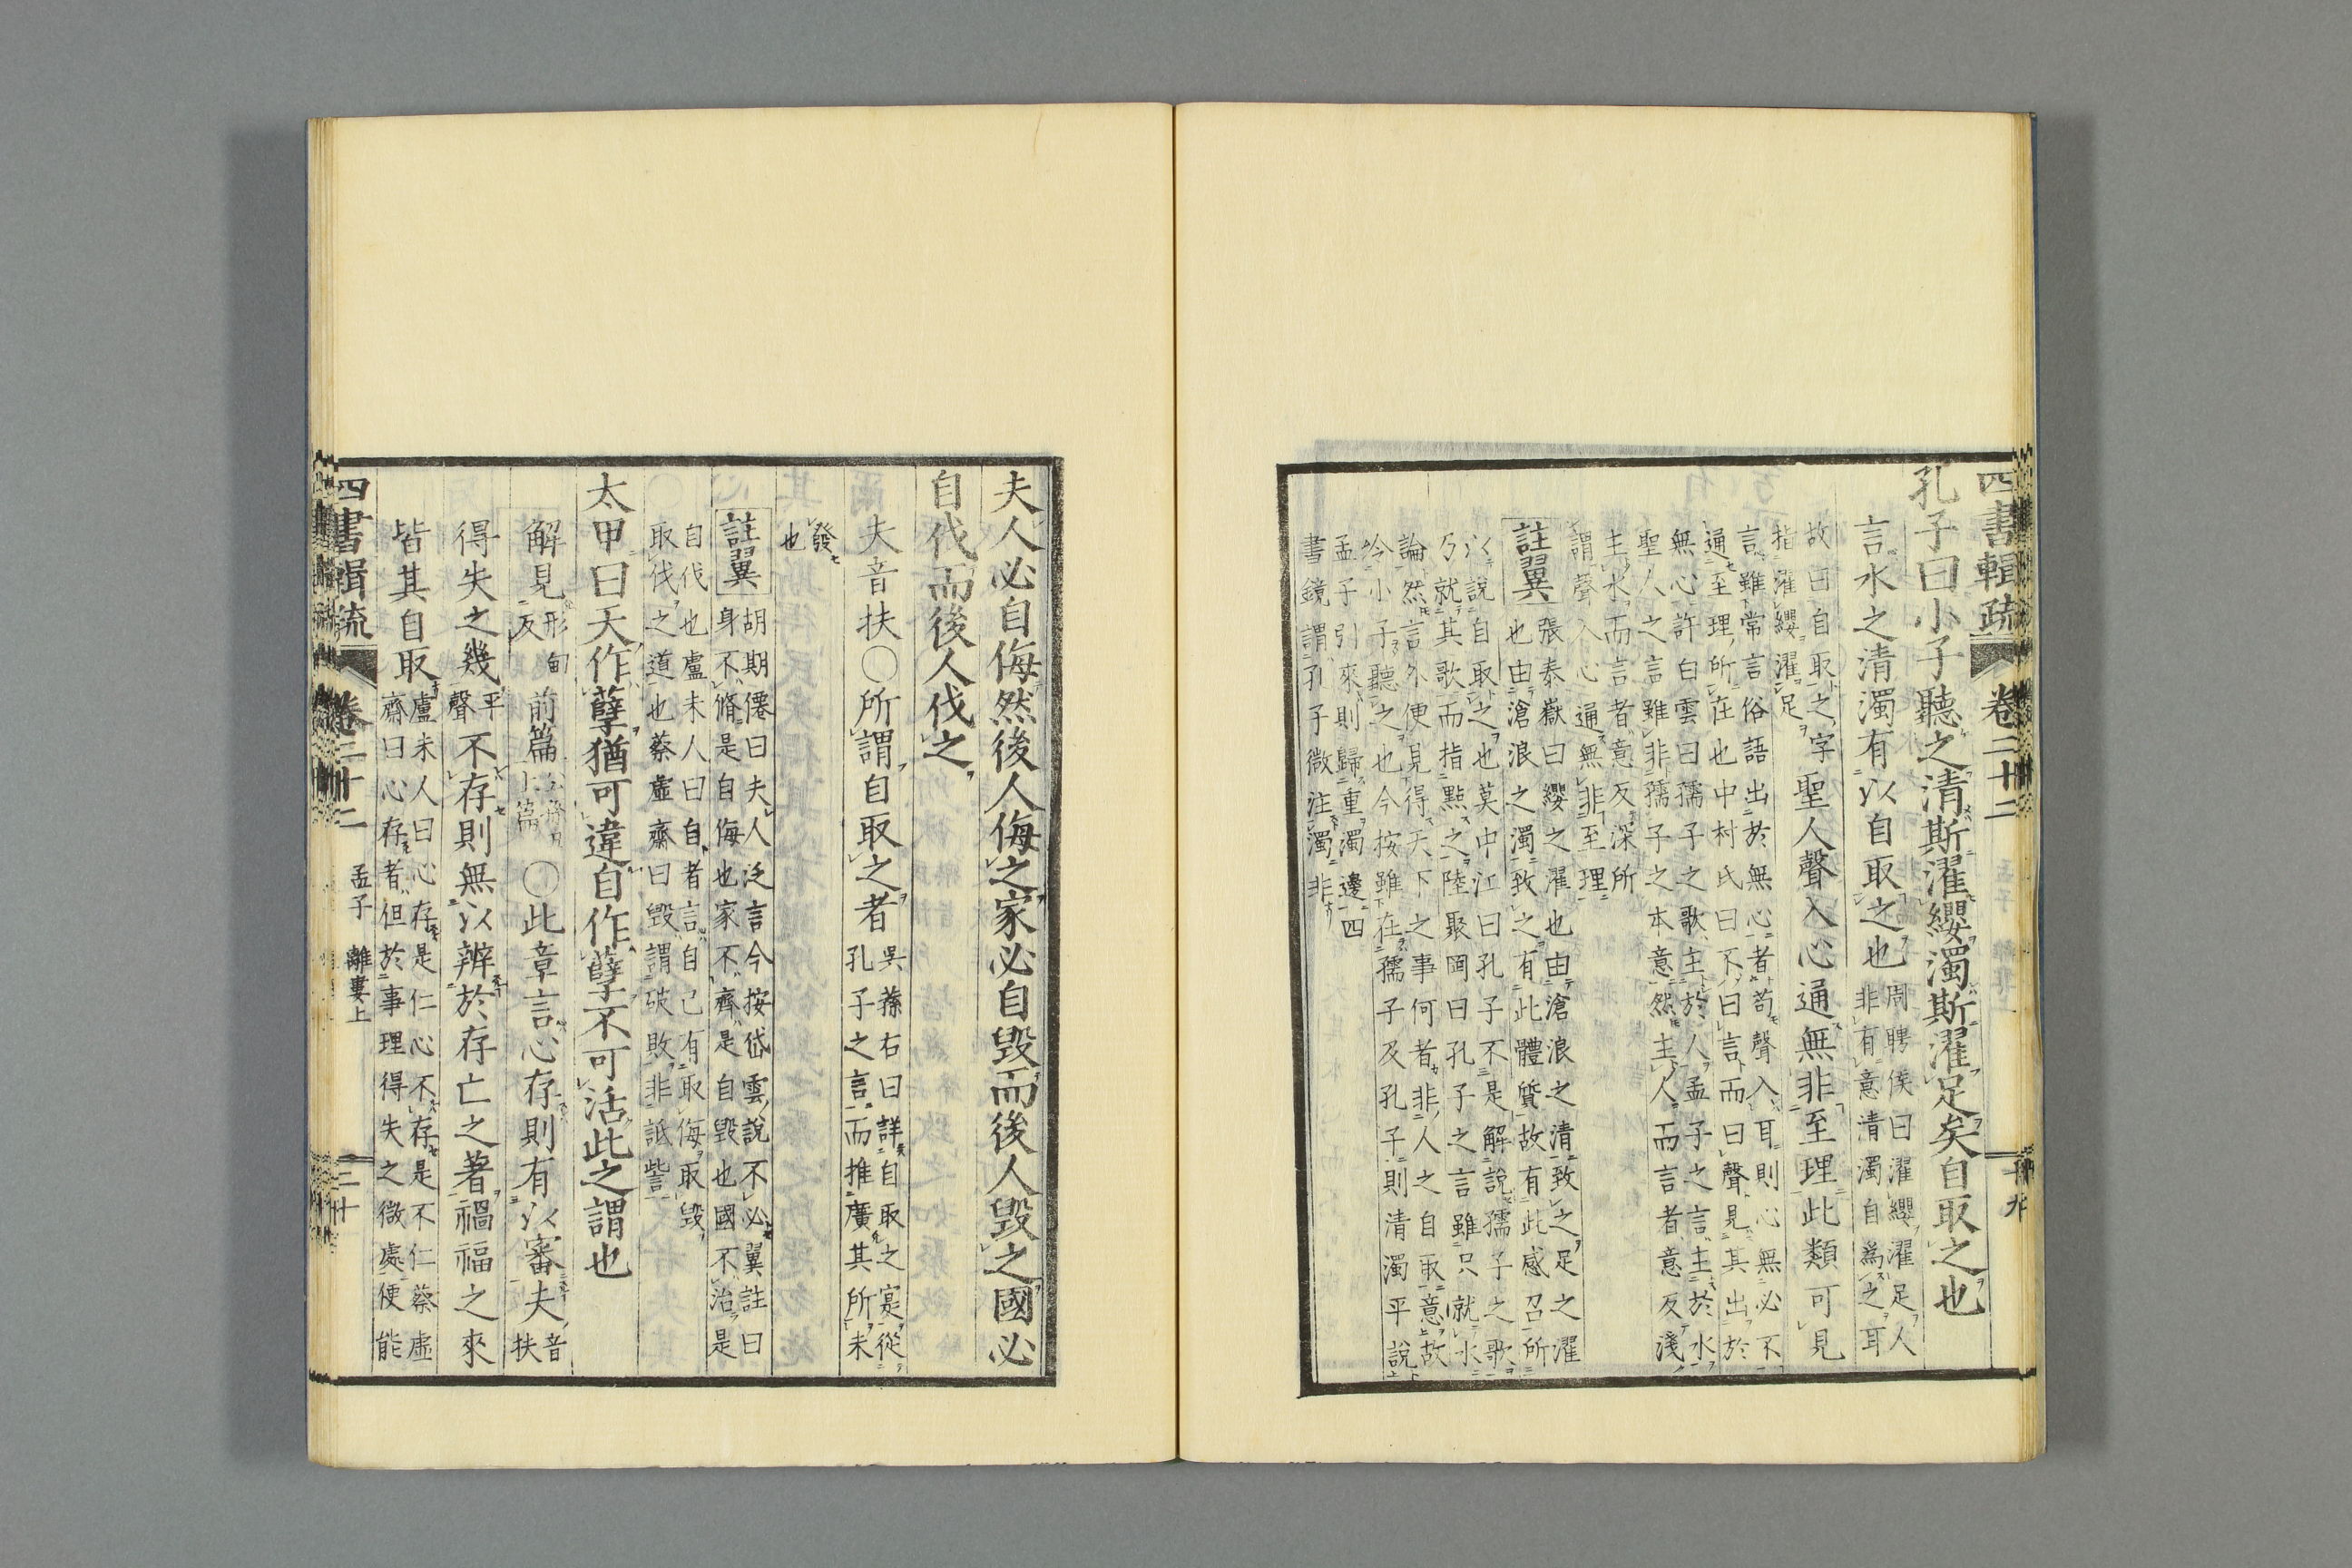 四書輯疏 卷二十二 十九
孔子曰小子聽之清斯濯纓濁斯濯足矣自取之也
言水之清濁有以自取之也 周聘侯曰濯纓濯足人
非有意清濁自爲之耳
故曰自取之字
指濯纓濯足
聖人聲入心通無非至理此類可見
言雖常言俗語出於無心者苟聲入耳則心無必不
通至理所在也中村氏曰不曰言而曰聲見其出於
無心許白雲曰孺子之歌主於人孟子之言主於水
聖人之言雖非孺子之本意然主人而言者意反淺
主水而言者意反深所
謂聲入心通無非至理
註翼 張泰嶽曰纓之濯也由滄浪之清致之足之濯
也由滄浪之濁致之有此體質故有此感召所
以說自取之也莫中江曰孔子不是解說孺子之歌
乃就其歌而指點之陸聚岡曰孔子之言雖只就水
論然言外便見得天下之事何者非人之自取意故
呤小子聽之也今按雖在孺子及孔子則清濁平說
孟子引來則歸重濁邊四
書鏡謂孔子微注濁非
夫人必自侮然後人侮之家必自毀而後人毀之國必
自伐而後人伐之
夫音扶○所謂自取之者 吳蓀右曰詳自取之寔從
孔子之言而推廣其所未
發
也
註翼 胡期僊曰夫人泛言今按岱雲說不必翼註曰
身不脩是自侮也家不齊是自毀也國不治是
自伐也盧未人曰自者言自己有取侮取毀
取伐之道也蔡虛齋曰毀謂破敗非詆訾
太甲曰天作孽猶可違自作孽不可活此之謂也
解見 形甸
反 前篇 ○此章言心存則有以審夫 音
扶
得失之幾 平
聲 不存則無以辨於存亡之著禍福之來
皆其自取 盧未人曰心存是仁心不存是不仁蔡虛
齋曰心存者但於事理得失之微處便能
四書輯疏 卷二十二 孟子 離婁上 二十